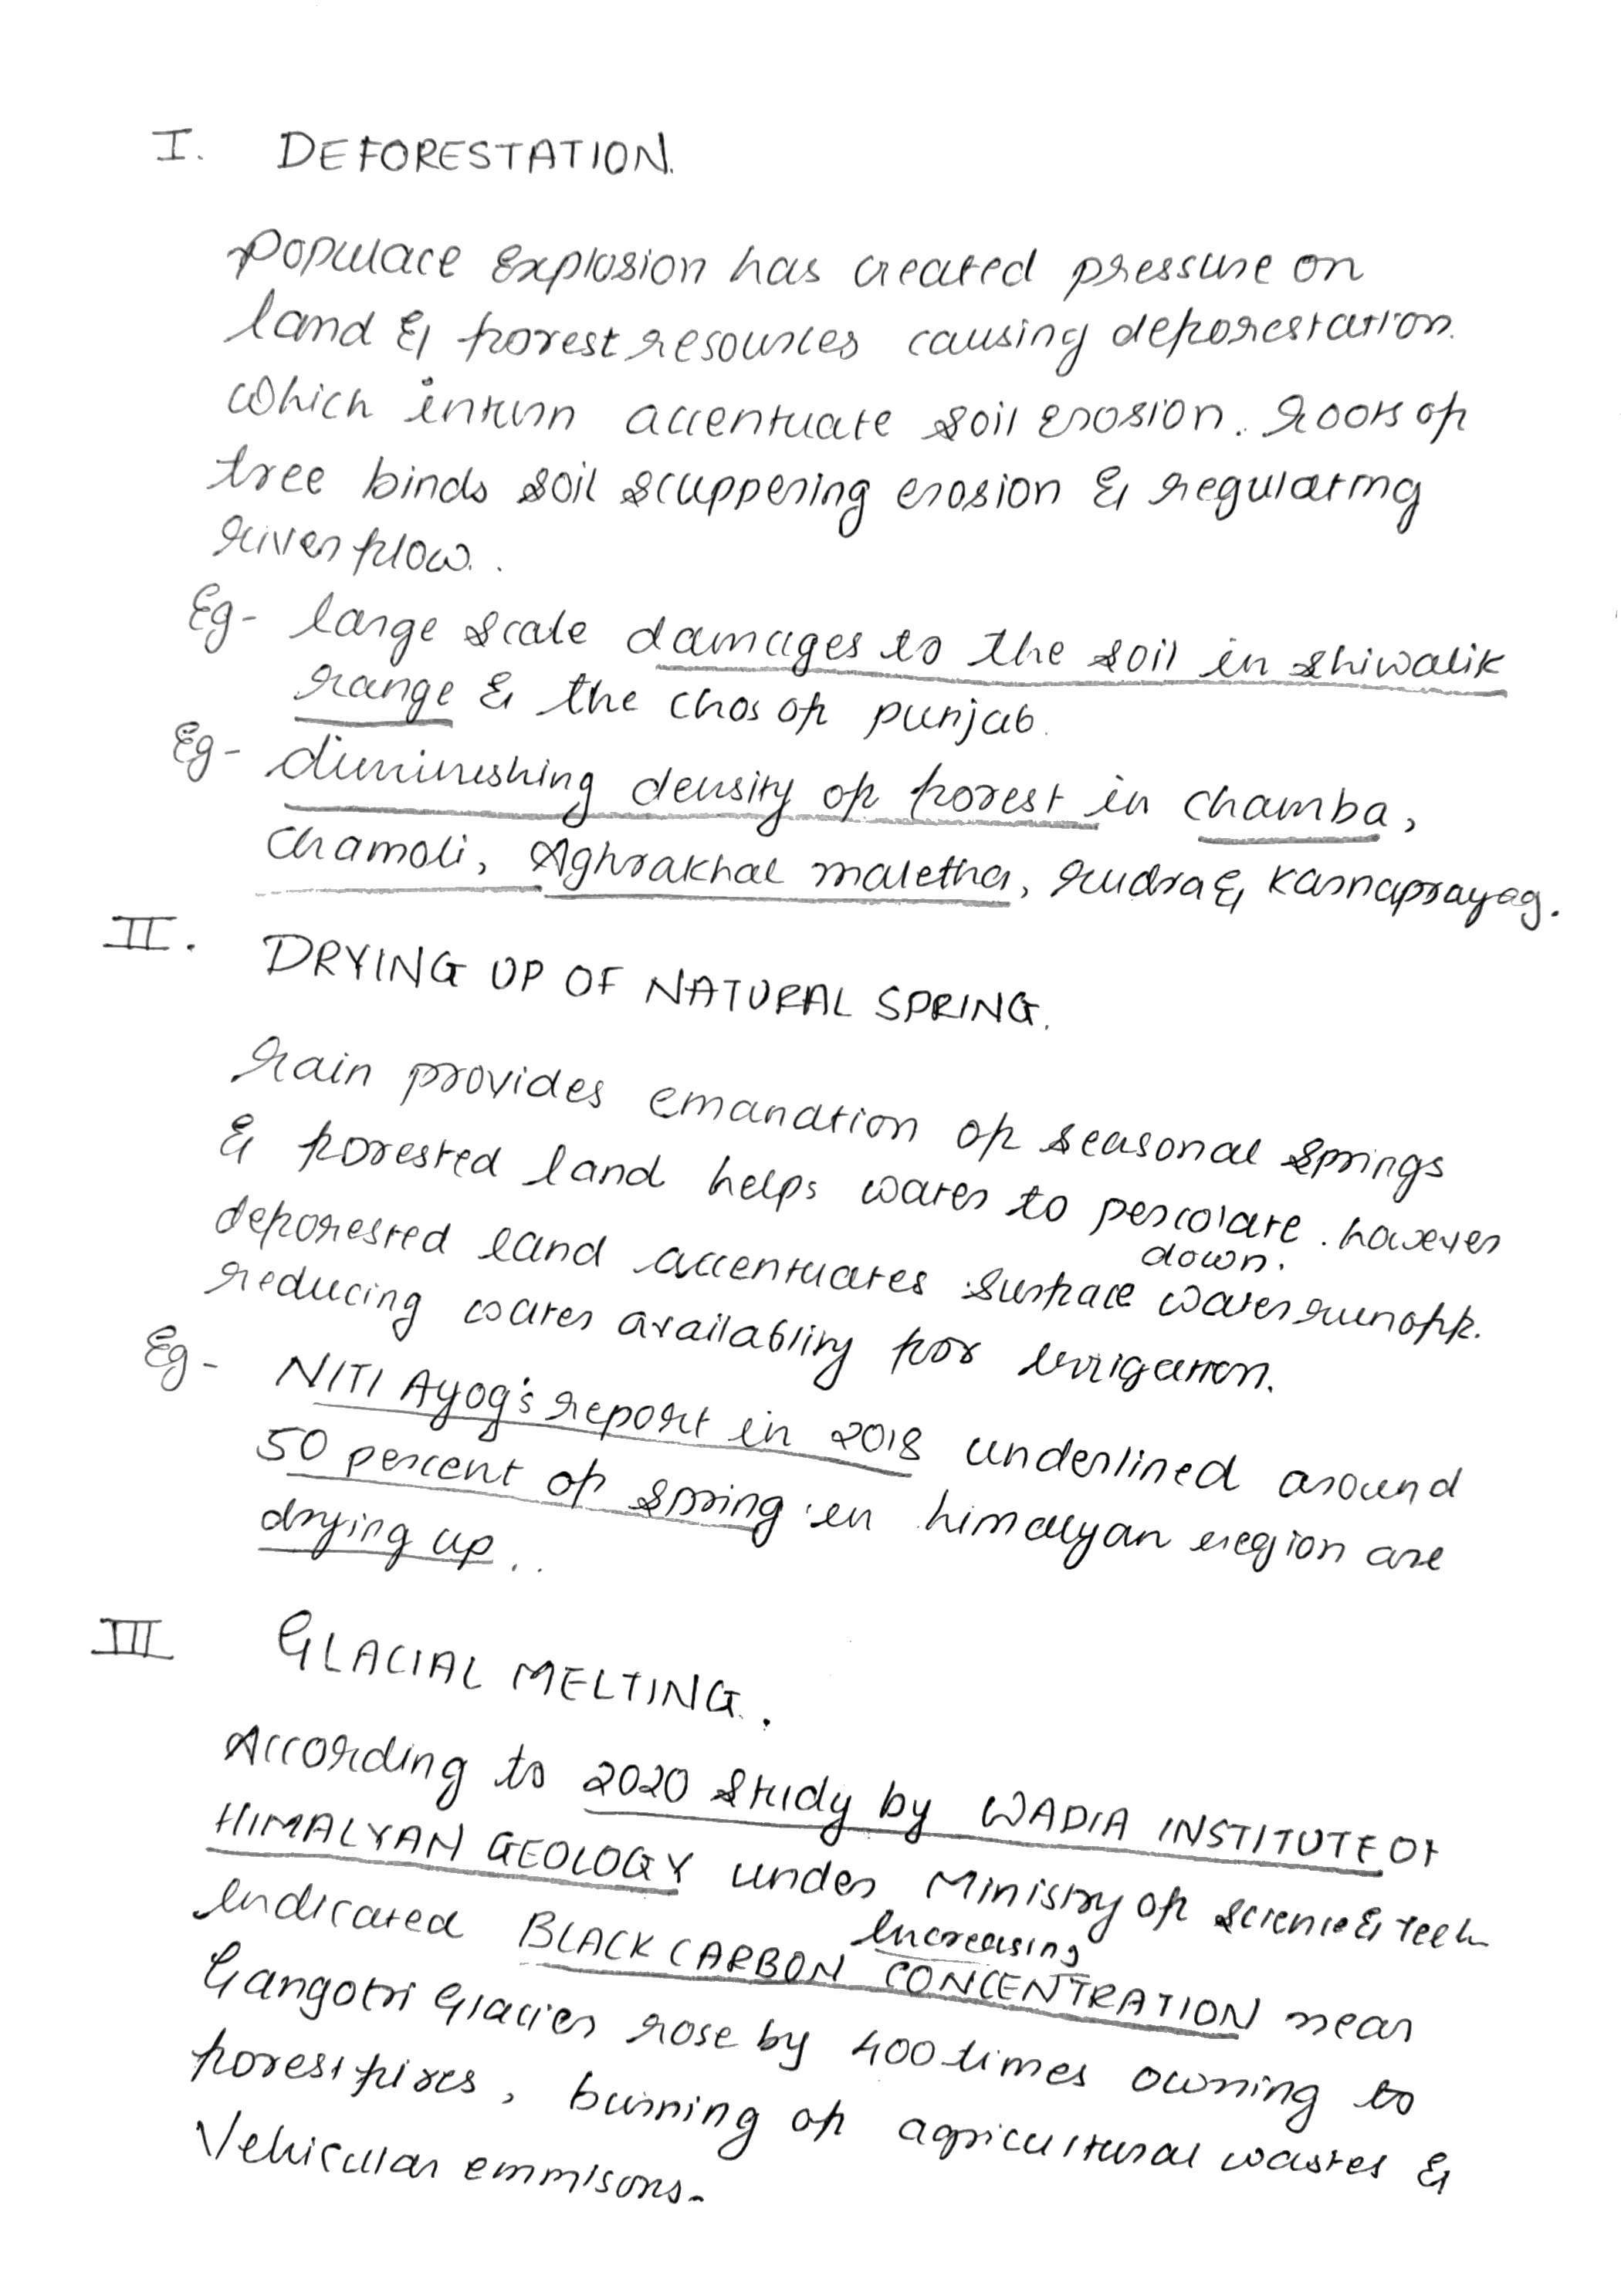 I. DEFORESTATION.
Populace Explosion has created pressure on
land & forest resources causing deforestation.
Which inturn accentuate soil erosion. Roots of
tree binds soil scuppering erosion & regulating
river flow..
Eg- large scale damages to the soil in shiwalik
range & the chos of punjab.
Eg- diminishing density of forest in chamba,
chamoli, Aghrakhal maletha, Rudra & Karnaprayag.
II. DRYING UP OF NATURAL SPRING.
Rain provides emanation of seasonal springs
& forested land helps water to percolate. however
down.
deforested land accentuates surface water runoff.
reducing water availablity for irrigation.
Eg- NITI Ayog's report in 2018 underlined around
50 percent of spring in himalyan region are
drying up..
III GLACIAL MELTING.
According to 2020 study by WADIA INSTITUTE OF
HIMALYAN GEOLOGY under Ministry of science & Tech
Increasing
indicated BLACK CARBON CONCENTRATION near
Gangotri Glacier rose by 400 times owning to
forest fires, burning of agricultural wastes &
Vehicular emmisons.